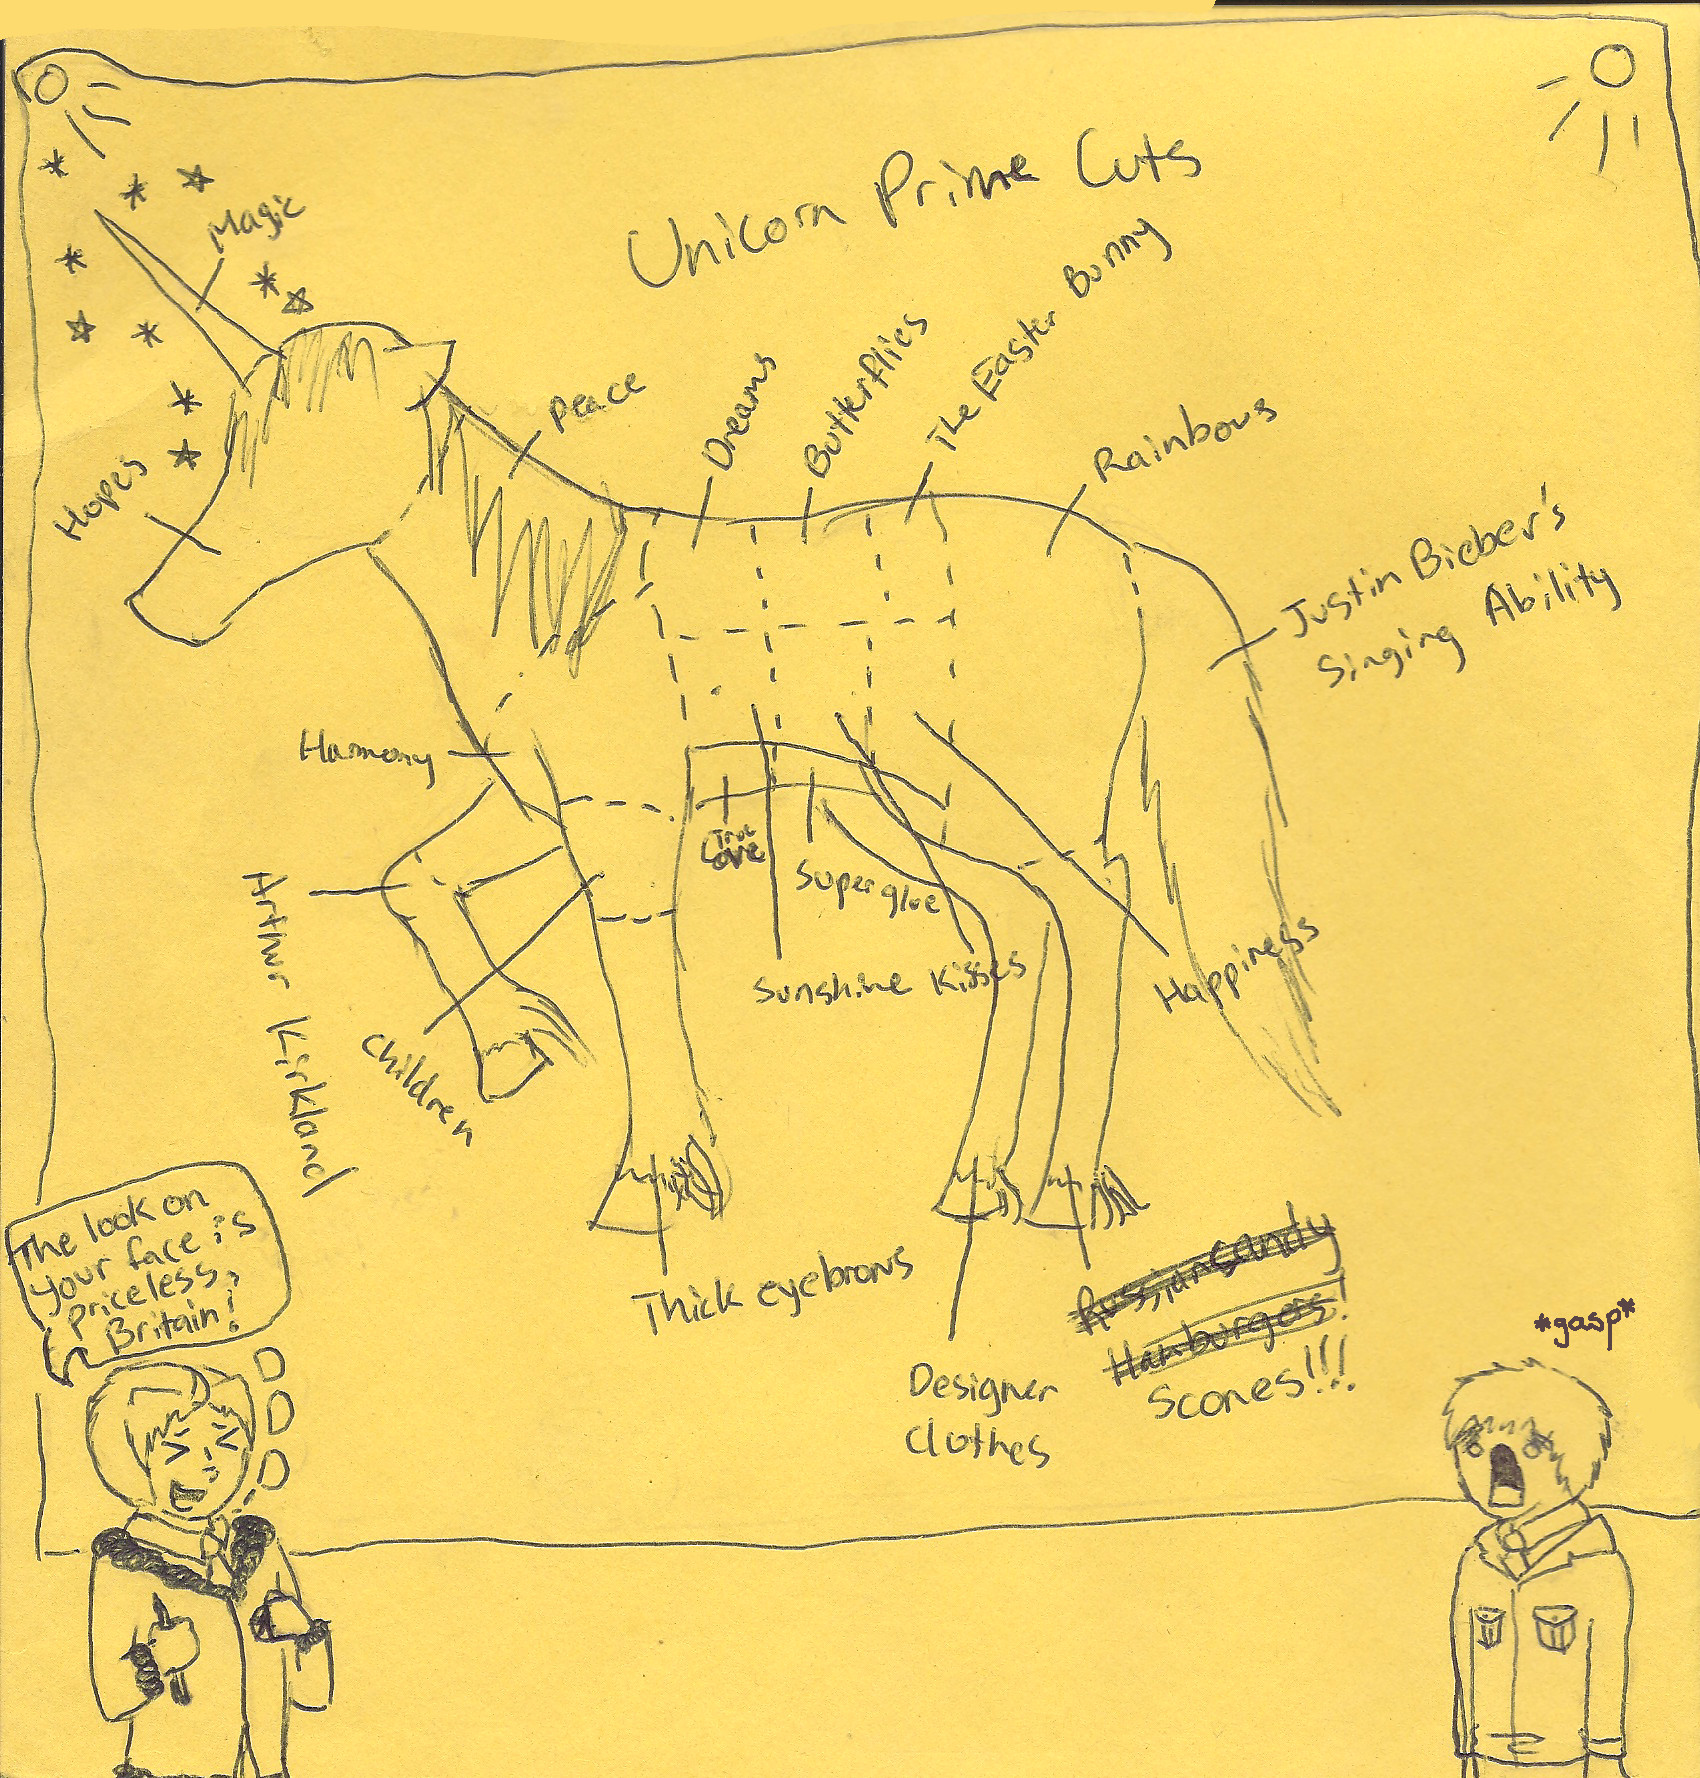 Unicorn Prime Cuts
Magic
Hopes
Peace
Dreams
Butterflies
The Easter Bunny
Rainbows
Justin Bieber's
Singing Ability
Harmony
Arthur Kirkland
Children
True
Love
Super glue
Sunshine Kisses
Happiness
Thick eyebrows
Designer
Clothes
Russian candy
Hamburgers!
Scones!!!
The look on
your face is
priceless,
Britain!
D
D
D
*gasp*